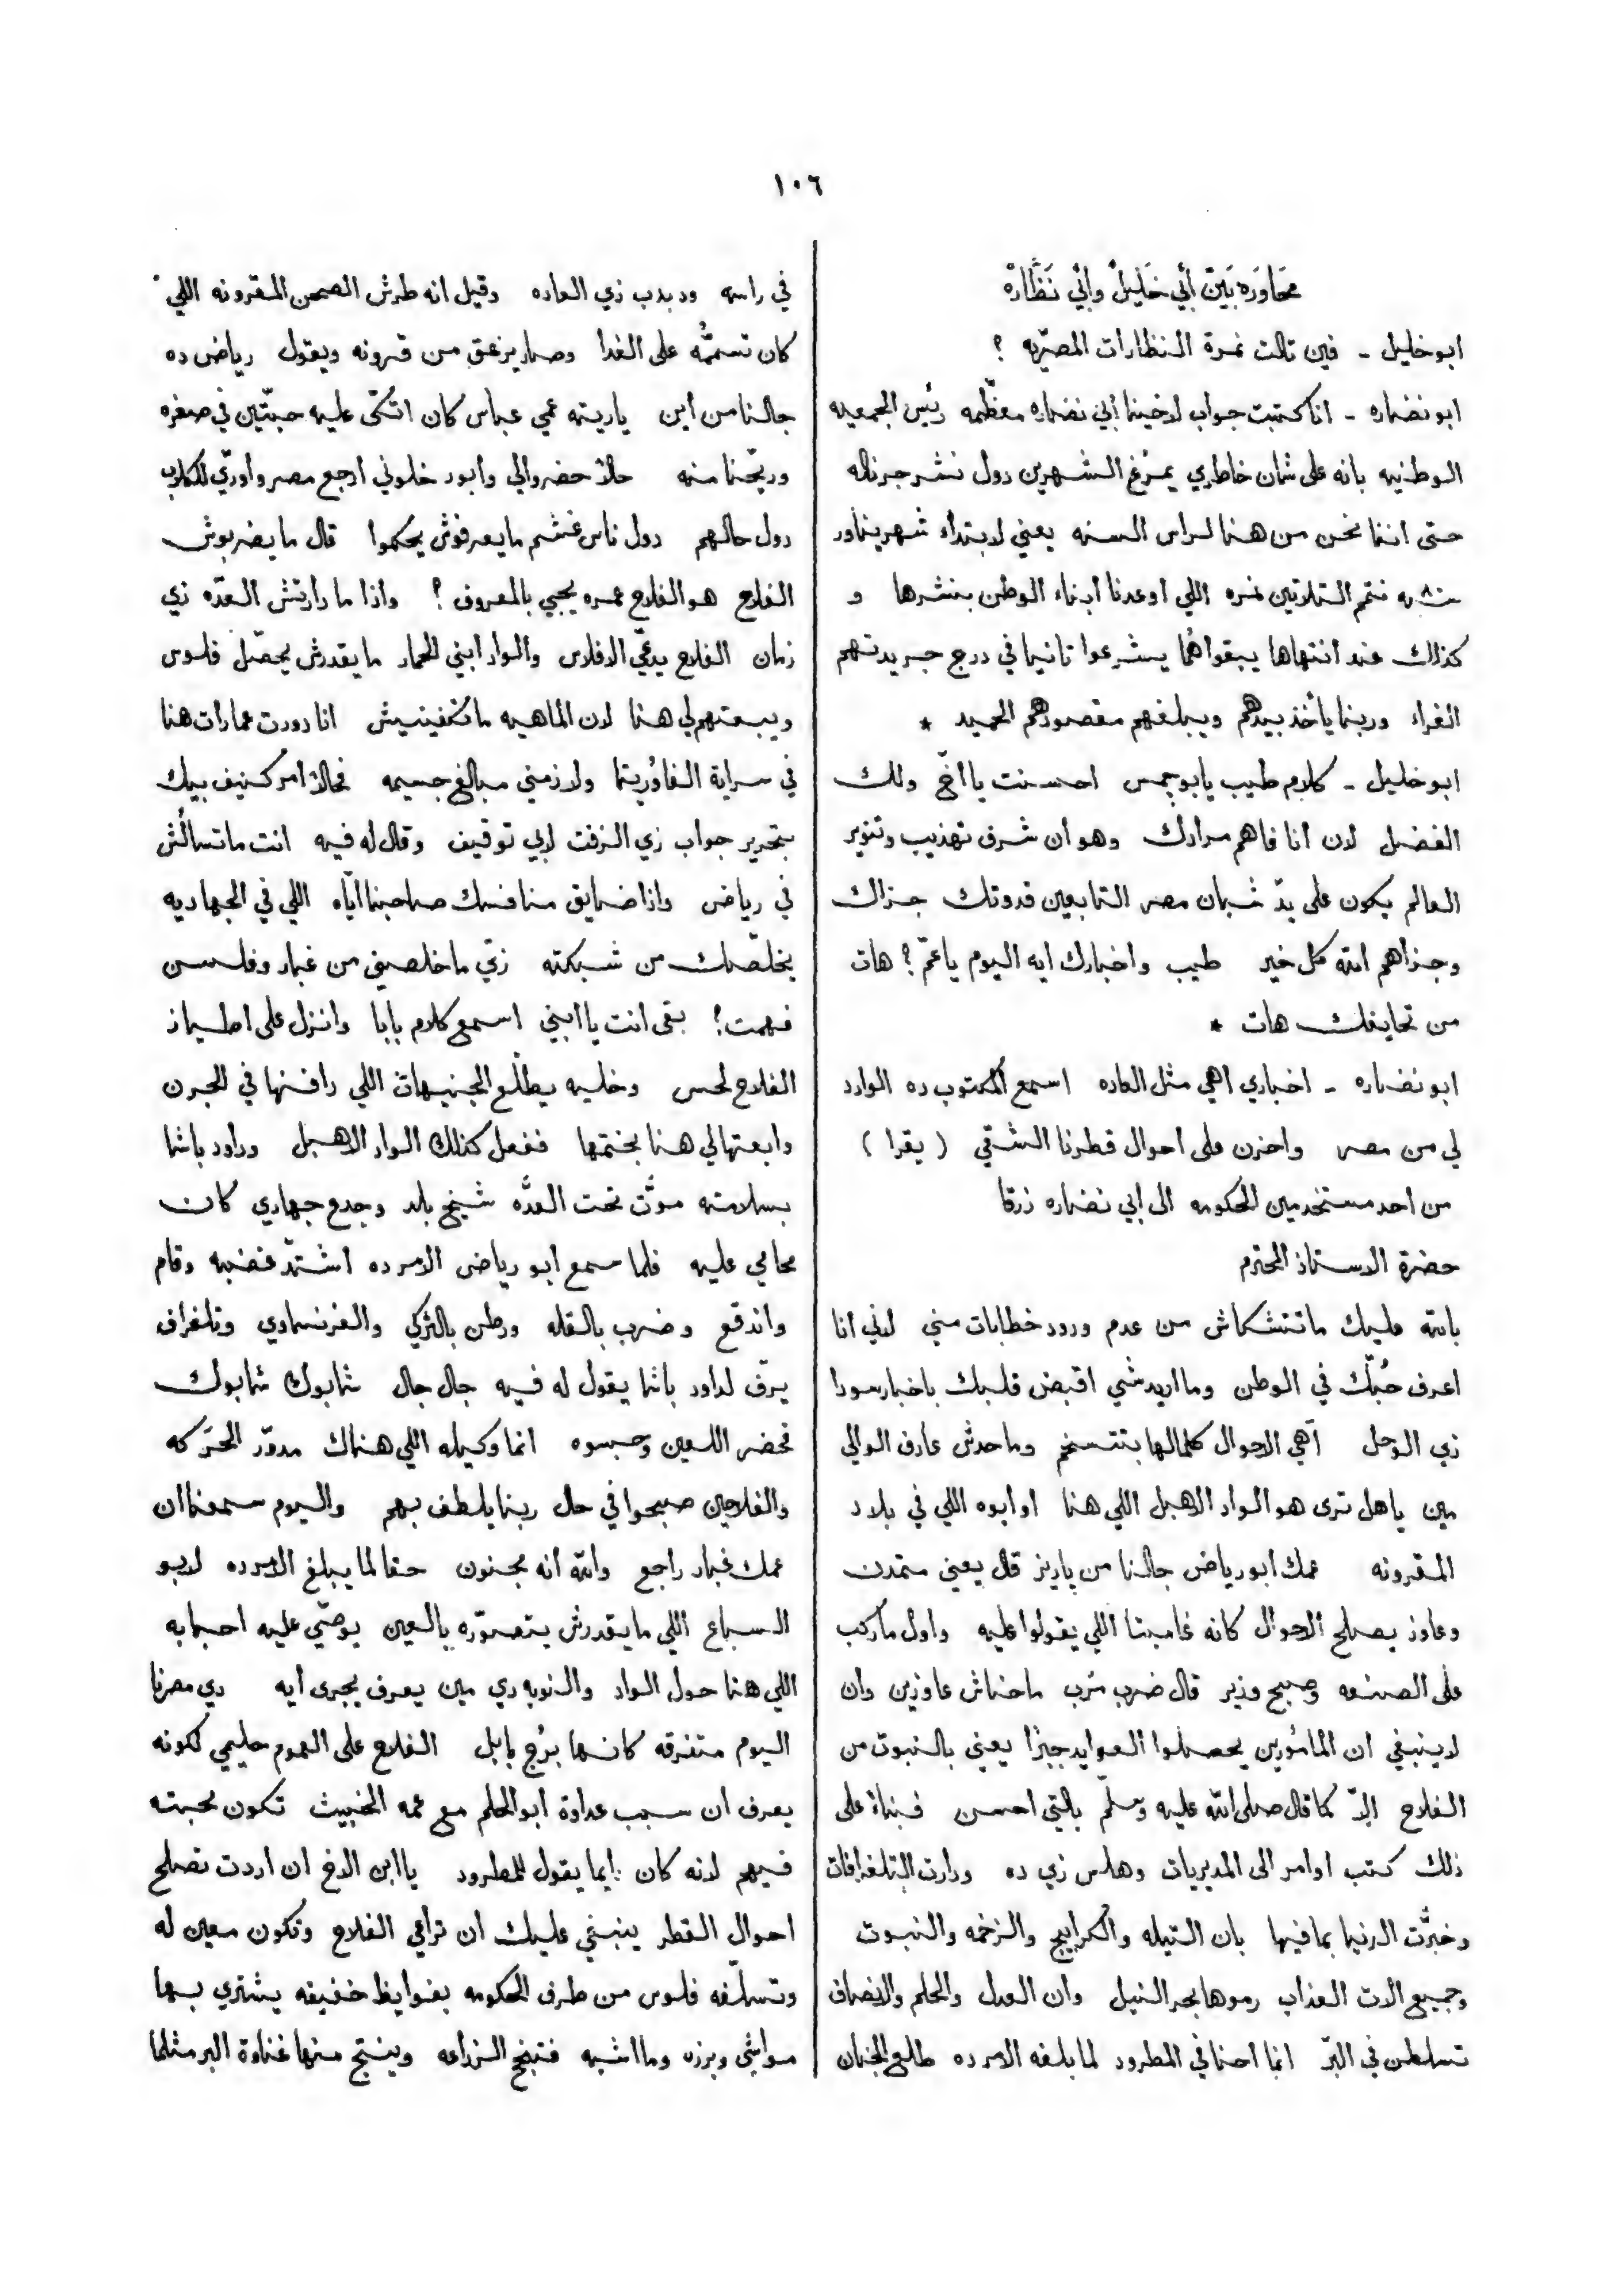 ١٠٦
محَاوَرَه بَيَن أَبي خَليِلْ وأَبي نَظَّارَهْ
ابو خليل - فين تالت نمرة النظارات المصرّيه ؟
ابو نضاره - انا كتبت جواب لاخينا أبي نضاره معظّمه رئيس الجمعيه
الوطنيه بانه على شان خاطري يمزّغ الشهرين دول نشر جرناله
حتى اننا نحن من هنا لراس السنه يعني لابتداء شهر يناور
نتم التلاتين نمره اللي اوعدنا ابناء الوطن بنشرها و
كذلك عند انتهاها يبقوا هُما يشرعوا تانيا في درج جريدتهم
الغراء وربنا يأخذ بيدهم ويبلغهم مقصودهم الحميد *
ابو خليل - كلام طيب يا بو احسنت يا اخّ ولك
الفضل لان أنا فاهم مرادك وهو أن شرف تهذيب وتنوير
العالم يكون على يدّ شبان مصر التابعين قدوتك جزاك
وجزاهم الله كل خير طيب واخبارك ايه اليوم يا عمّ ؟ هات
من تحايفك هات *
ابو نضاره - اخباري اهي مثل العاده اسمع المكتوب ده الوارد
لي من مصر واحزن على احوال قطرنا الشقي ( يقرا )
من احد مستخدمين الحكومه الى ابي نضاره زرقا
حضرة الاستاذ المحترم
بالله عليك ما تتشكاش من عدم ورود خطابات مني لاني انا
اعرف حُبّك في الوطن وما اريد شي اقبض قلبك باخبار سودا
زي الوحل آهي الاحوال كلمالها بتتسخم وما حدش عارف الوالي
مين يا هل ترى هو الواد الاهبل اللي هنا او ابوه اللي في بلاد
المقرونه عمك ابو رياض جالنا من باريز قال يعني متمدن
وعاوز يصلح الاحوال كانه غامبتا اللي يقولوا عليه واول ما ركب
على الصنعه وصبح وزير قال ضرب مَرب ما حناش عاوزين وان
لا ينبغي ان المأمورين يحصلوا العوايد جبرًا يعني بالنبوت من
الفلاح الاّ كما قال صلى الله عليه وسلّم بالتي احسن فبناءً على
ذلك كتب اوامر الى المديريات وهلس زي ده ودارت التلغرافات
وخبرَّت الدنيا بما فيها بان التيله والكرابيج والزخمه والنبوت
وجميع ألات العذاب رموها بحر النيل وان العدل والحلم والانصاف
تسلطن في البرّ انما احنا في المطرود لما بلغه الامر ده طلع الجنان
في راسه ودبدب زي العاده وقيل انه طرش الصحن المقرونه اللي
كان تسمُّه على الغدا وصار يزعق من قرونه ويقول رياض ده
جالنا من أين ياريته عمي عباس كان اتّكى عليه حبّتين في صغره
وريّحنا منه حالاً حضروالي وابور خلوني ارجع مصر واورّي للكلاب
دول حالهم دول ناس غشم ما يعرفوش يحكموا قال ما يضربوش
الفلاح هو الفلاح عمره يجيي بالمعروف ؟ واذا ما دارتش العدّه زي
زمان الفلاح يدعّي الافلاس والواد ابني الحمار ما يقدرش يحصّل فلوس
ويبعتهم لي هنا لان الماهيه ما تكفينيش انا دورت عمارات هنا
في سراية الفاوريتا ولازمني مبالغ جسيمه فحالاً امر كنيف بيك
بتحرير جواب زي الزفت لابي توقيف وقال له فيه انت ما تسألش
في رياض واذا ضايق منافسك صاحبنا ايّاه اللي في الجهاديه
يخلّصك من شبكته زيّ ما خلصني من غبار وفلسن
فهمت ؟ بقى انت يا ابني اسمع كلام بابا وانزل على اطياز
الفلاح لحس وخليه يطلّع الجنيهات اللي دافنها في الجرن
وابعتهالي هنا بختمها ففعل كذلك الواد الاهبل وداود باشا
بسلامته موَّت تحت العدَّه شيخ بلد وجدع جهادي كان
محامي عليه فلما سمع ابو رياض الامر ده اشتدّ غضبه وقام
واندفع وضرب بالقله ورطن بالتركي والفرنساوي وتلغراف
يرفّ لداود باشا يقول له فيه جال جال شابوك شابوك
فحضر اللعين وحبسوه انما وكيله اللي هناك مدوّر الحرَكه
والفلاحين صبحوا في حال ربنا يلطف بهم واليوم سمعنا ان
عمك غبار راجع والله انه مجنون حقا لما يبلغ الامر ده لابو
السباع اللي ما يقدرش يتصوّره بالعين يوصّي عليه احبابه
اللي هنا حول الواد والنوبه دي مين يعرف يجرى ايه دي مصرنا
اليوم متفرقه كانها بُرج بابل الفلاح على العموم حليمي لكونه
يعرف ان سبب عداوة ابو الحلم مع عمه الخبيث تكون محبته
فيهم لانه كان دايما يقول للمطرود يا ابن الاخ ان اردت تصلح
احوال القطر ينبغي عليك ان تراعي الفلاح وتكون معين له
وتسلّفه فلوس من طرف الحكومه بفوايظ خفيفه يشتري بها
مواشي وبزره وما اشبه فتنجح الزراعه وينتج منها غناوة البر مثلما